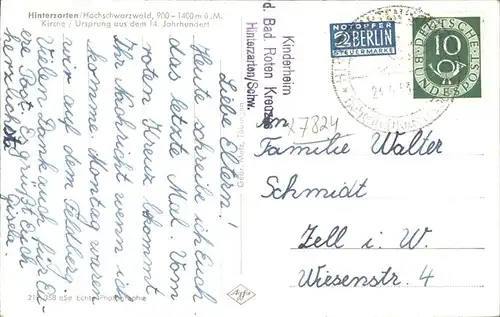 Hinterzarten/Hochschwarzwald, 900 - 1400 m ü. M.
Kirche / Ursprung aus dem 14. Jahrhundert
Liebe Eltern!
Heute schreibe ich Euch
das letzte Mal. Vom
roten Kreuz bekommt
Ihr Nachricht wenn ich
komme. Montag waren
wir auf dem Feldberg.
Vielen Dank auch für
Es grüßt Euch
herzlichst
Gisela
Kinderheim
d. Bad. Roten Kreuzes
Hinterzarten/Schw.
NOTOPFER
2 BERLIN
STEUERMARKE
DEUTSCHE
BUNDESPOST
10
27824
An
Familie Walter
Schmidt
Zell i. W.
Wiesenstr. 4
Agfa
Echte Photographie